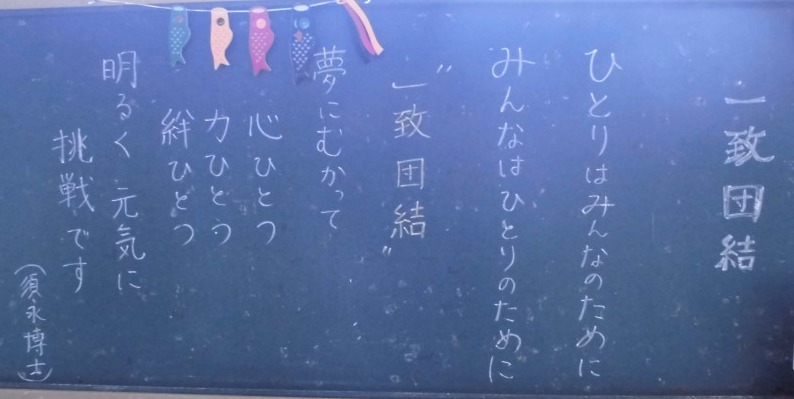 一致団結
ひとりはみんなのために
みんなはひとりのために
"一致団結"
夢にむかって
心ひとつ
力ひとつ
絆ひとつ
明るく元気に
挑戦です
(須永博士)